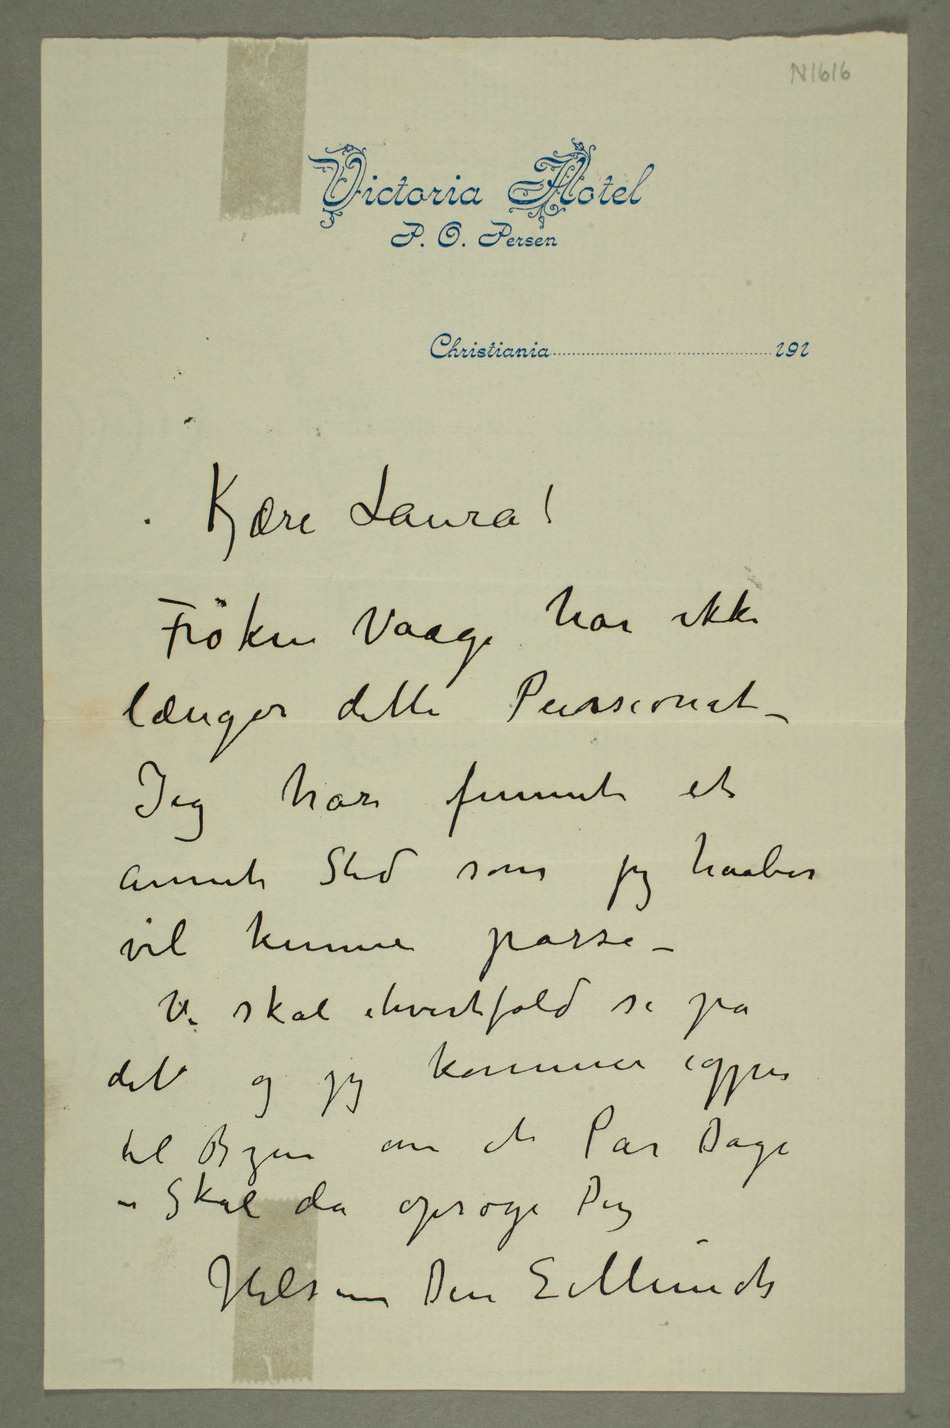 N1616
Victoria Hotel
P. O. Persen
Christiania 191
Kjære Laura!
Frøken Vaage har ikke
længer dette Pensionat –
Jeg har funnet et
annet Sted som jeg haaber
vil kunne passe –
Vi skal ihvertfald se på
det og jeg kommer igjen
til Byen om et Par Dage
– Skal da opsøge Dig
Hilsen Din E Munch